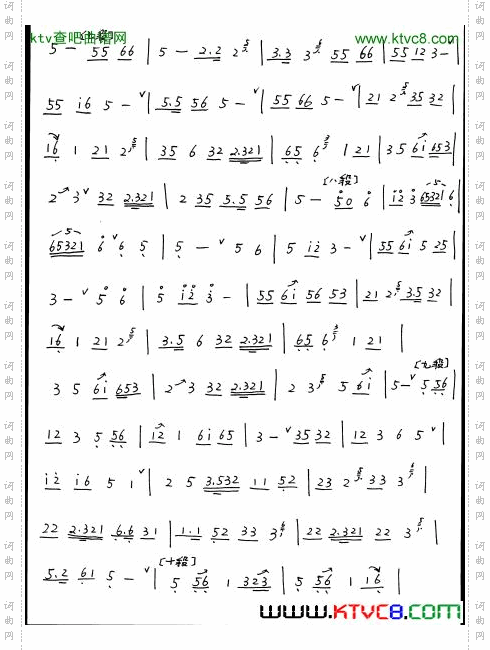 ktv查吧曲谱网 www.ktvc8.com
5 — 55 66 | 5 — 2.2 2 | 3.3 3 55 66 | 55 12 3 — |
55 i6 5 — ∨ | 5.5 56 5 — ∨ | 55 66 5 — ∨ | 21 2 35 32 |
16 1 21 2 | 35 6 32 2.321 | 65 6 1 21 | 35 6i 653 |
2 3 ∨ 32 2.321 | 2 35 5.5 56 | 5 — [八段] 50 6 | i2 3 65321 6 |
65321 6 ∨ 6 5 | 5 — ∨ 5 6 | 5 i2 3 — ∨ | 55 6i 5 25 |
3 — ∨ 5 6 | 5 i2 3 — | 55 6i 56 53 | 21 2 3.5 32 |
16 1 21 2 | 3.5 6 32 2.321 | 65 6 1 21 |
3 5 6i 653 | 2 3 32 2.321 | 2 3 5 6i | 5 — ∨ [九段] 5 56 |
12 3 5 56 | 12 1 6i 65 | 3 — ∨ 35 32 | 12 3 6 5 ∨ |
i2 i6 5 1 ∨ | 2 5 3.532 11 52 | 23 2 33 3 |
22 2.321 6.6 31 | 1.1 52 33 3 | 22 2.321 22 3 |
5.2 61 5 — ∨ | [十段] 5 56 1 323 | 5 56 1 16 |
www.KTVC8.com
词曲网